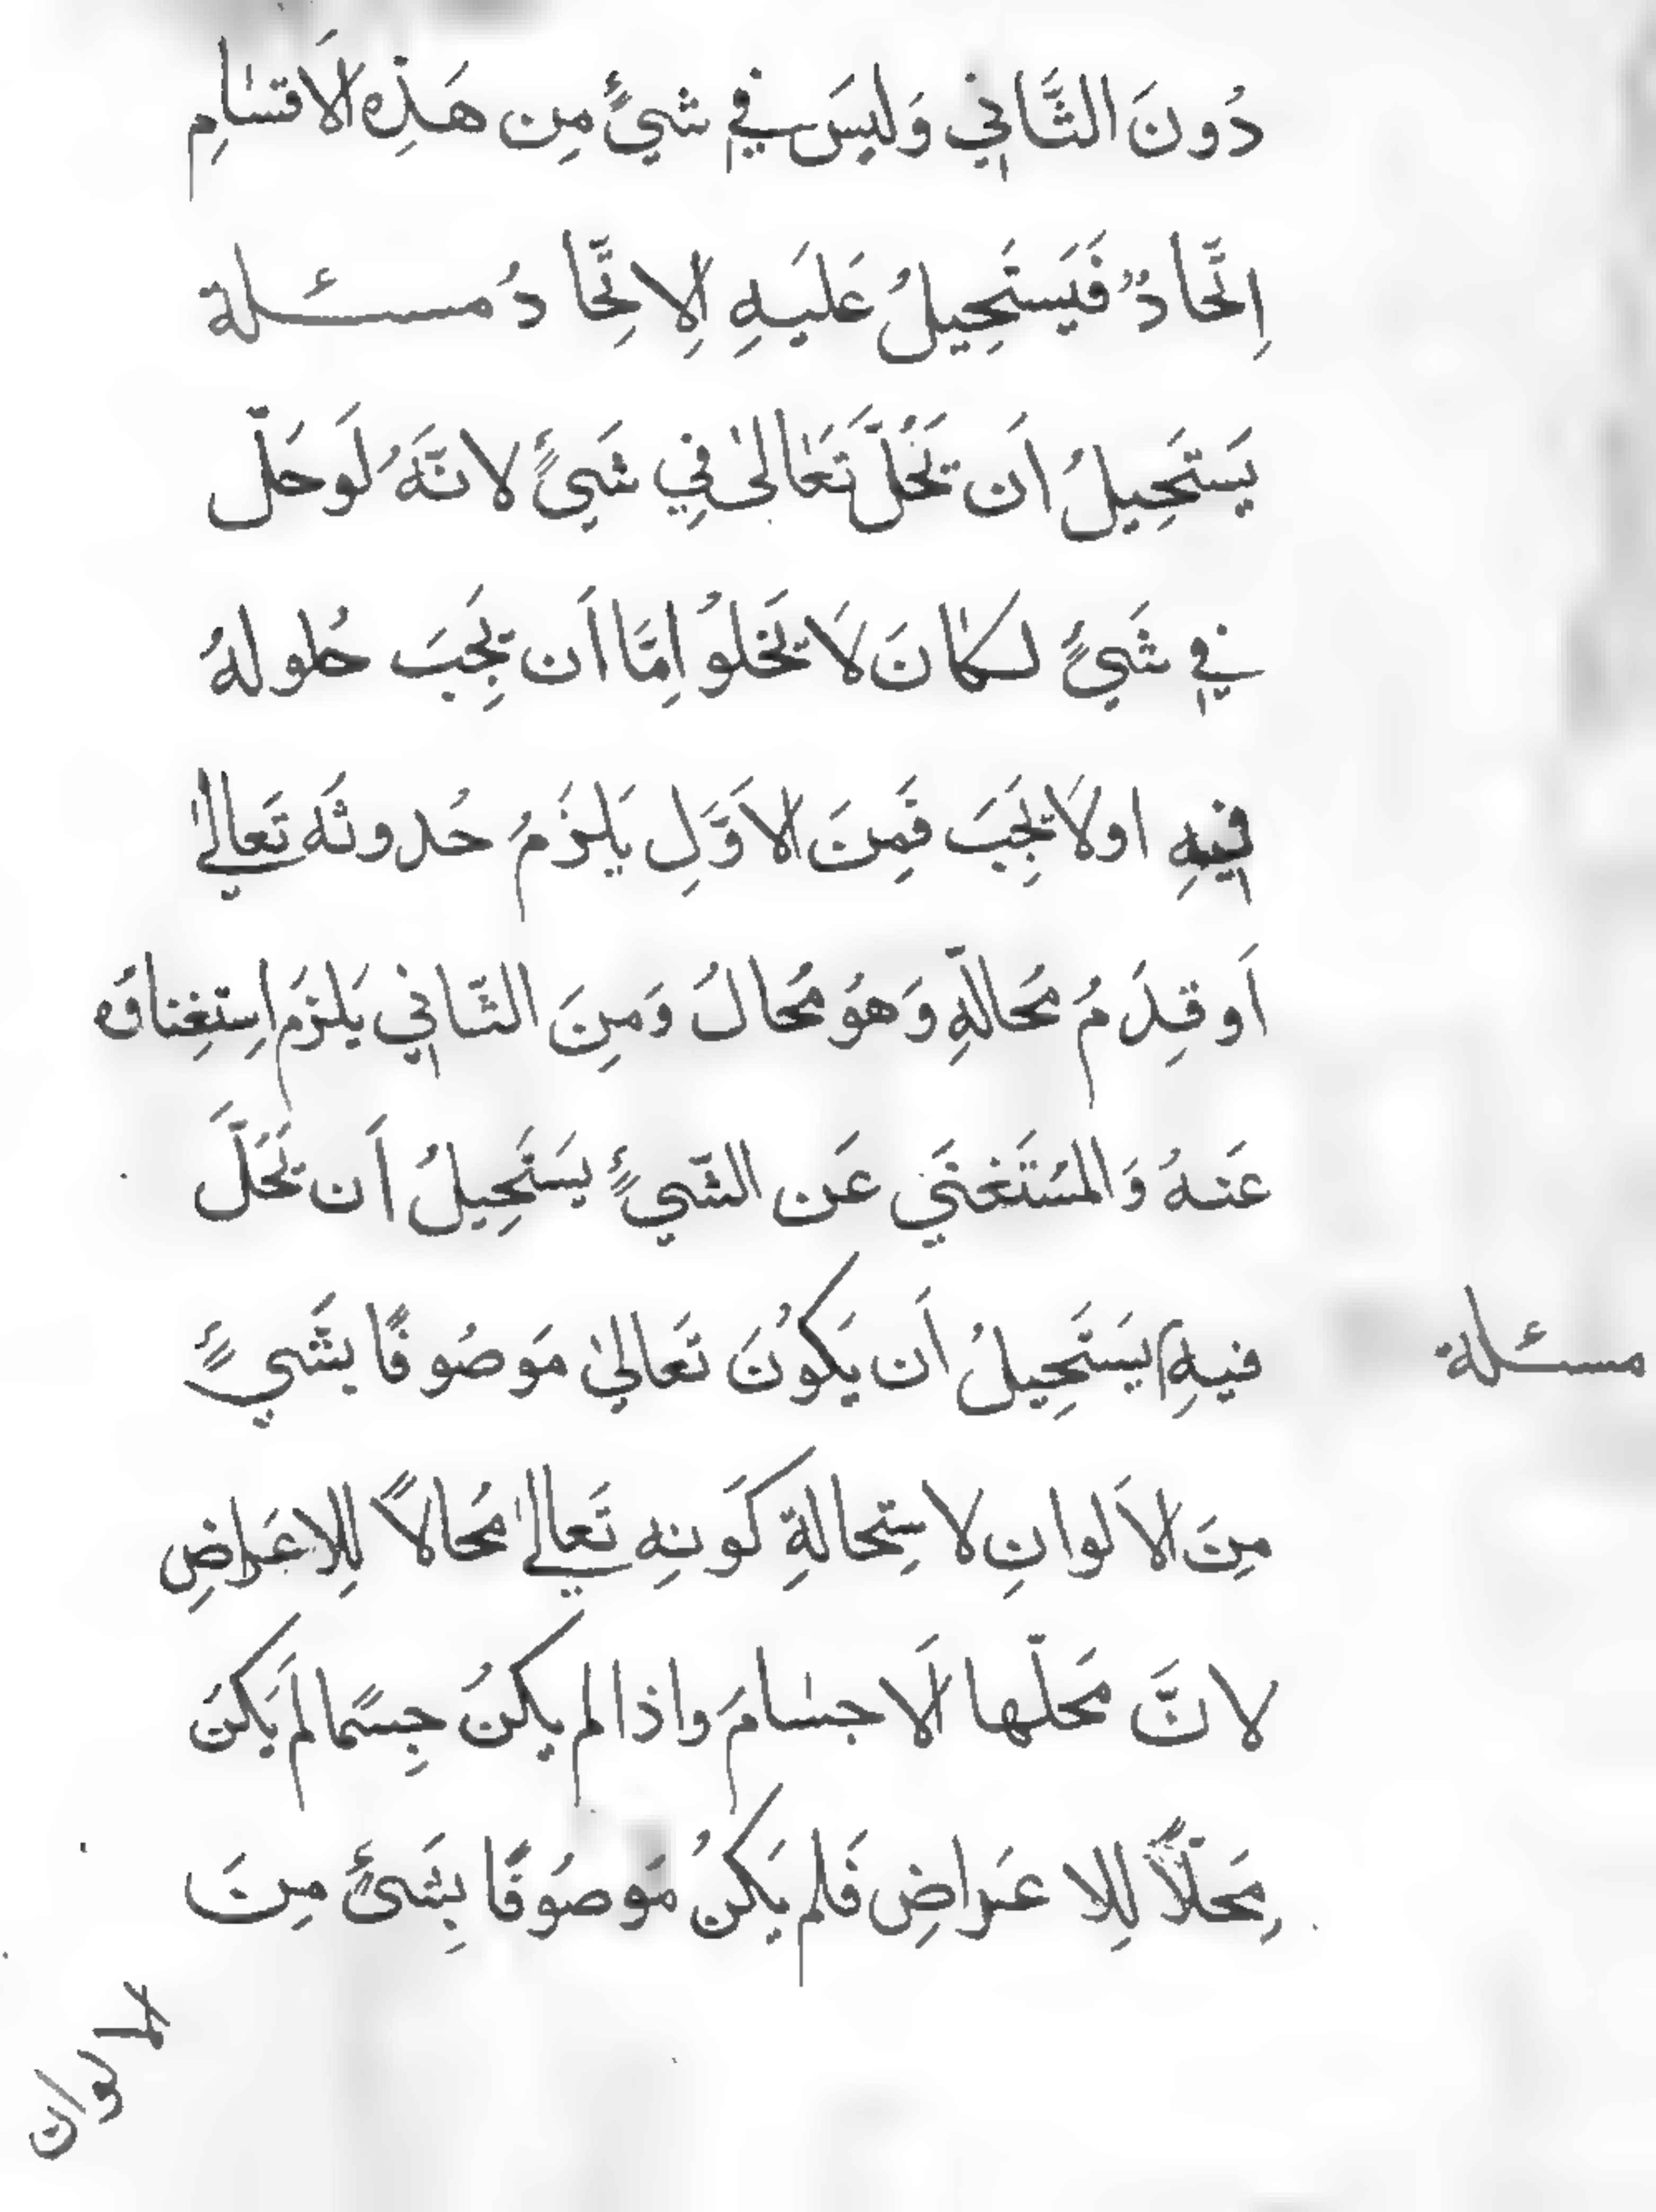 دُونَ الثَّاني وَليسَ في شيءٍ مِن هَذِهِ الَاقسَامِ
اِتّحادٌ فَيَستَحِيلُ عَليَهِ الِاتِّحَادُ مسئلة
يَستَحِيلُ اَن يَحُلَّ تَعَالىٰ فِي شَيءٍ لانَّهُ لَوحَلّ
في شَيءٍ لكانَ لَا يَخلوُ اِمَّا اَن يَجِبَ حُلولهُ
فيهِ اولَا يَجِبَ فَمِنَ الاَوَّلِ يَلزَمُ حُدوثَه تَعالىٰ
اَو قِدَمُ مَحَالّهِ وَهوَ مُحالُ وَمِنَ الثّاني يَلزَم اِستغِناؤه
عَنهُ وَالمسُتَغنَي عَن الشّيءٍ يسَتَحِيلُ اَن يَحُلَّ
مسئلة
فيهِ يسَتَحِيلُ اَن يَكوُنَ تَعالىٰ مَوصُوفًا بشَيءٍ
مِنَ الاَلوانِ لاستِحالةِ كَونهِ تَعالىٰ مُحالاً لِلاعَراضِ
لانَّ مَحَلّها الَاجسَامَ واذا لم يكنُ جِسمًا لَم يَكنَ
مَحَلّاً لِلاعَراضِ فَلم يَكنُ مَوصوُفًا بِشَئٍ مِنَ
الالوان